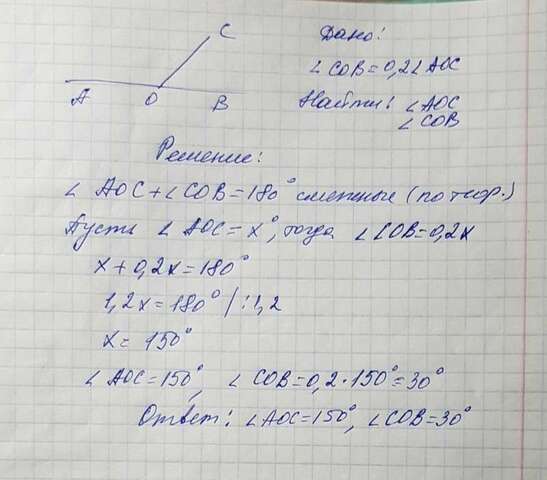 C
A O B
Дано:
∠COB=0,2∠AOC
Найти: ∠AOC
∠COB
Решение:
∠AOC+∠COB=180° смежные (по теор.)
Пусть ∠AOC=x°, тогда ∠COB=0,2x
x+0,2x=180°
1,2x=180° /:1,2
x=150°
∠AOC=150°, ∠COB=0,2·150°=30°
Ответ: ∠AOC=150°, ∠COB=30°